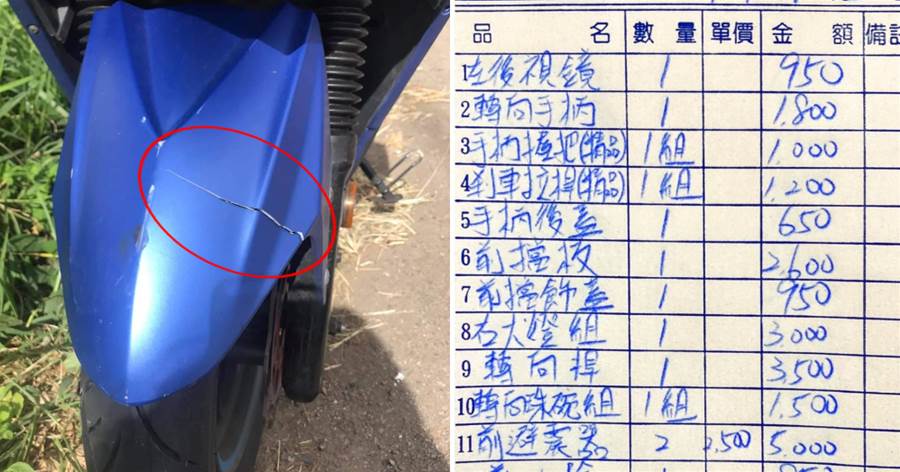 品 名 數 量 單價 金 額 備註
1 左後視鏡 1 950
2 轉向手柄 1 1.800
3 手柄握把(精品) 1組 1.000
4 剎車拉桿(精品) 1組 1.200
5 手柄後蓋 1 650
6 前擋板 1 2.600
7 前擋飾蓋 1 950
8 右大燈組 1 3.000
9 轉向桿 1 3.500
10 轉向珠碗組 1組 1.500
11 前避震器 2 2,500 5.000